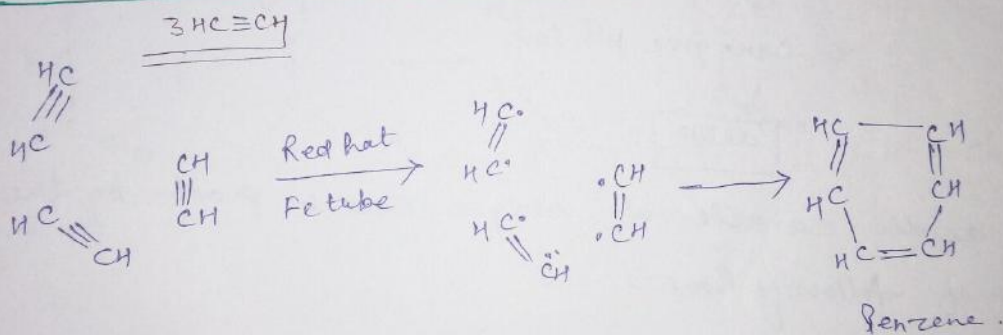 3HC≡CH
HC
HC
CH
CH
HC
CH
Red hot
Fe tube
HC•
HC•
•CH
•CH
HC•
C̈H
HC
CH
HC
CH
HC
CH
Benzene.